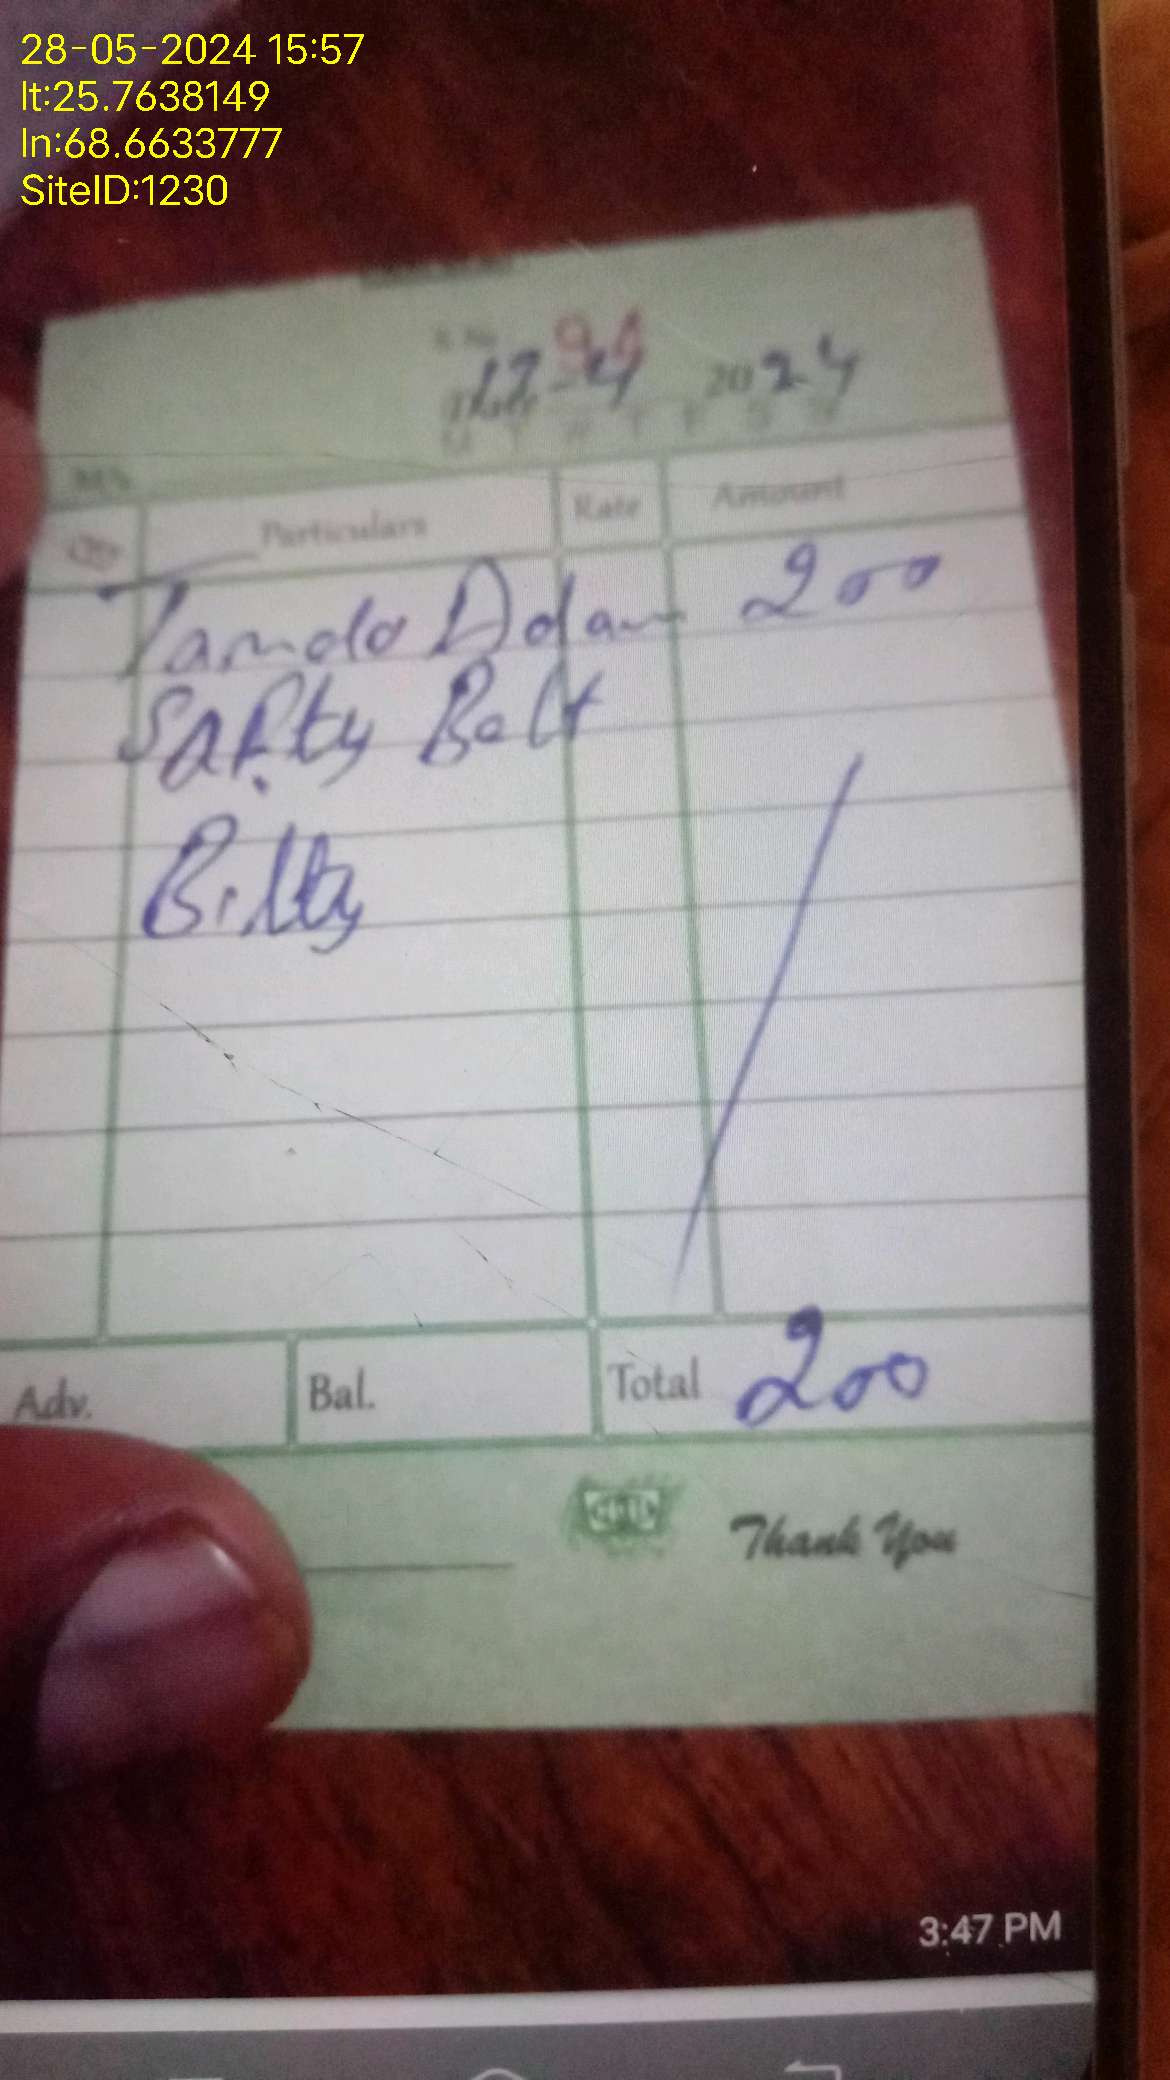 28-05-2024 15:57
lt:25.7638149
ln:68.6633777
SiteID:1230
94
12-4 2024
M T W T F S S
M/s.
Qty Particulars Rate Amount
Tando Adam 200
Safty Belt
Bilty
Adv. Bal. Total 200
Thank You
3:47 PM